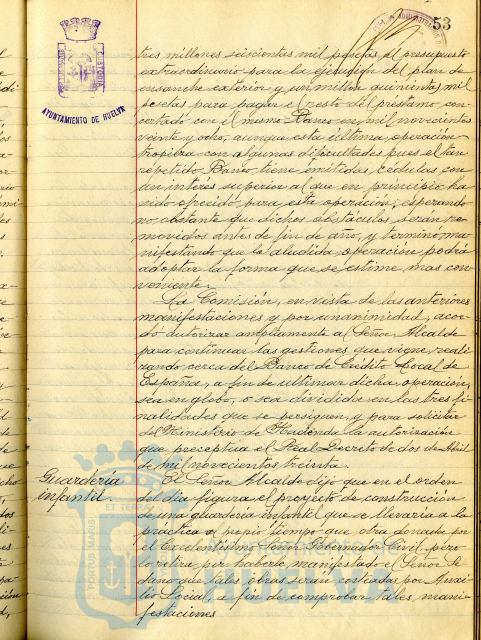 53
AYUNTAMIENTO DE HUELVA
tres millones seiscientas mil pesetas el presupuesto
extraordinario para la ejecución del plan de
ensanche exterior y un millon quinientas mil
pesetas para pagar el resto del préstamo con-
certado con el mismo Banco en mil novecientos
veinte y ocho, aunque esta última operación
tropieza con algunas dificultades pues el tan
repetido Banco tiene emitidas cedulas con
un interés superior al que en principio ha
sido ofrecido para esta operación; esperando
no obstante que dichos obstáculos serán re-
movidos antes de fin de año, y terminó ma-
nifestando que la aludida operación podrá
adoptar la forma que se estime mas con-
veniente.
La Comisión, en vista de las anteriores
manifestaciones y por unanimidad, acor-
dó autorizar ampliamente al Señor Alcalde
para continuar las gestiones que viene reali-
zando cerca del Banco de Crédito Local de
España, a fin de ultimar dicha operación,
sea en globo, o sea dividida en las tres fi-
nalidades que se persiguen, y para solicitar
del Ministerio de Hacienda la autorización
que preceptua el Real Decreto de dos de Abril
de mil novecientos treinta.
Guardería
infantil
El Señor Alcalde dijo que en el orden
del dia figura el proyecto de construcción
de una guarderia infantil que se llevaria a la
práctica a propio tiempo que otra donada por
el Excelentísimo Señor Gobernador Civil, pero
lo retira por haberle manifestado el Señor Se-
daño que tales obras serán costeadas por Auxi-
lio Social, a fin de comprobar tales mani-
festaciones